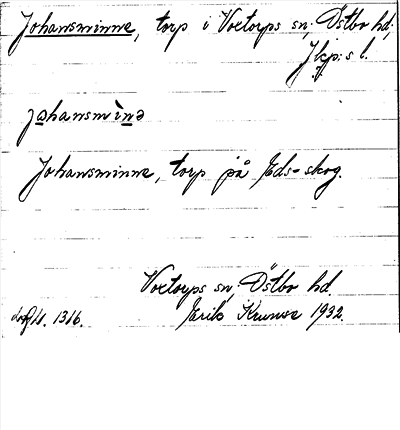 Johansminne, torp i Voxtorps sn, Östbo hd,
Jkp:s l.
johansmìnə
Johansminne, torp på Eds-skog.
Voxtorps sn, Östbo hd.
Erik Kruuse 1932.
1316.